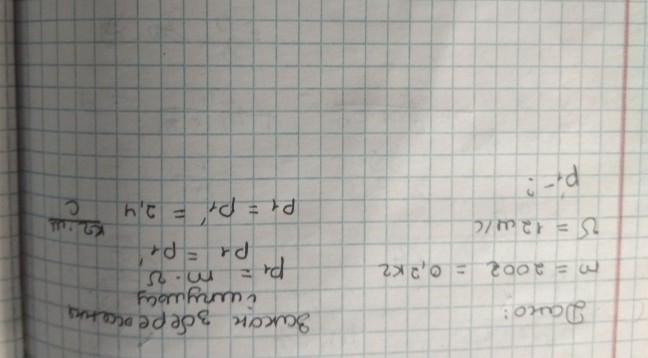 Дано:
m = 200г = 0,2 кг
υ = 12 м/с
p₁' - ?
Закон збереження
імпульсу
p₁ = m · υ
p₁ = p₁'
p₁ = p₁' = 2,4 кг·м/с